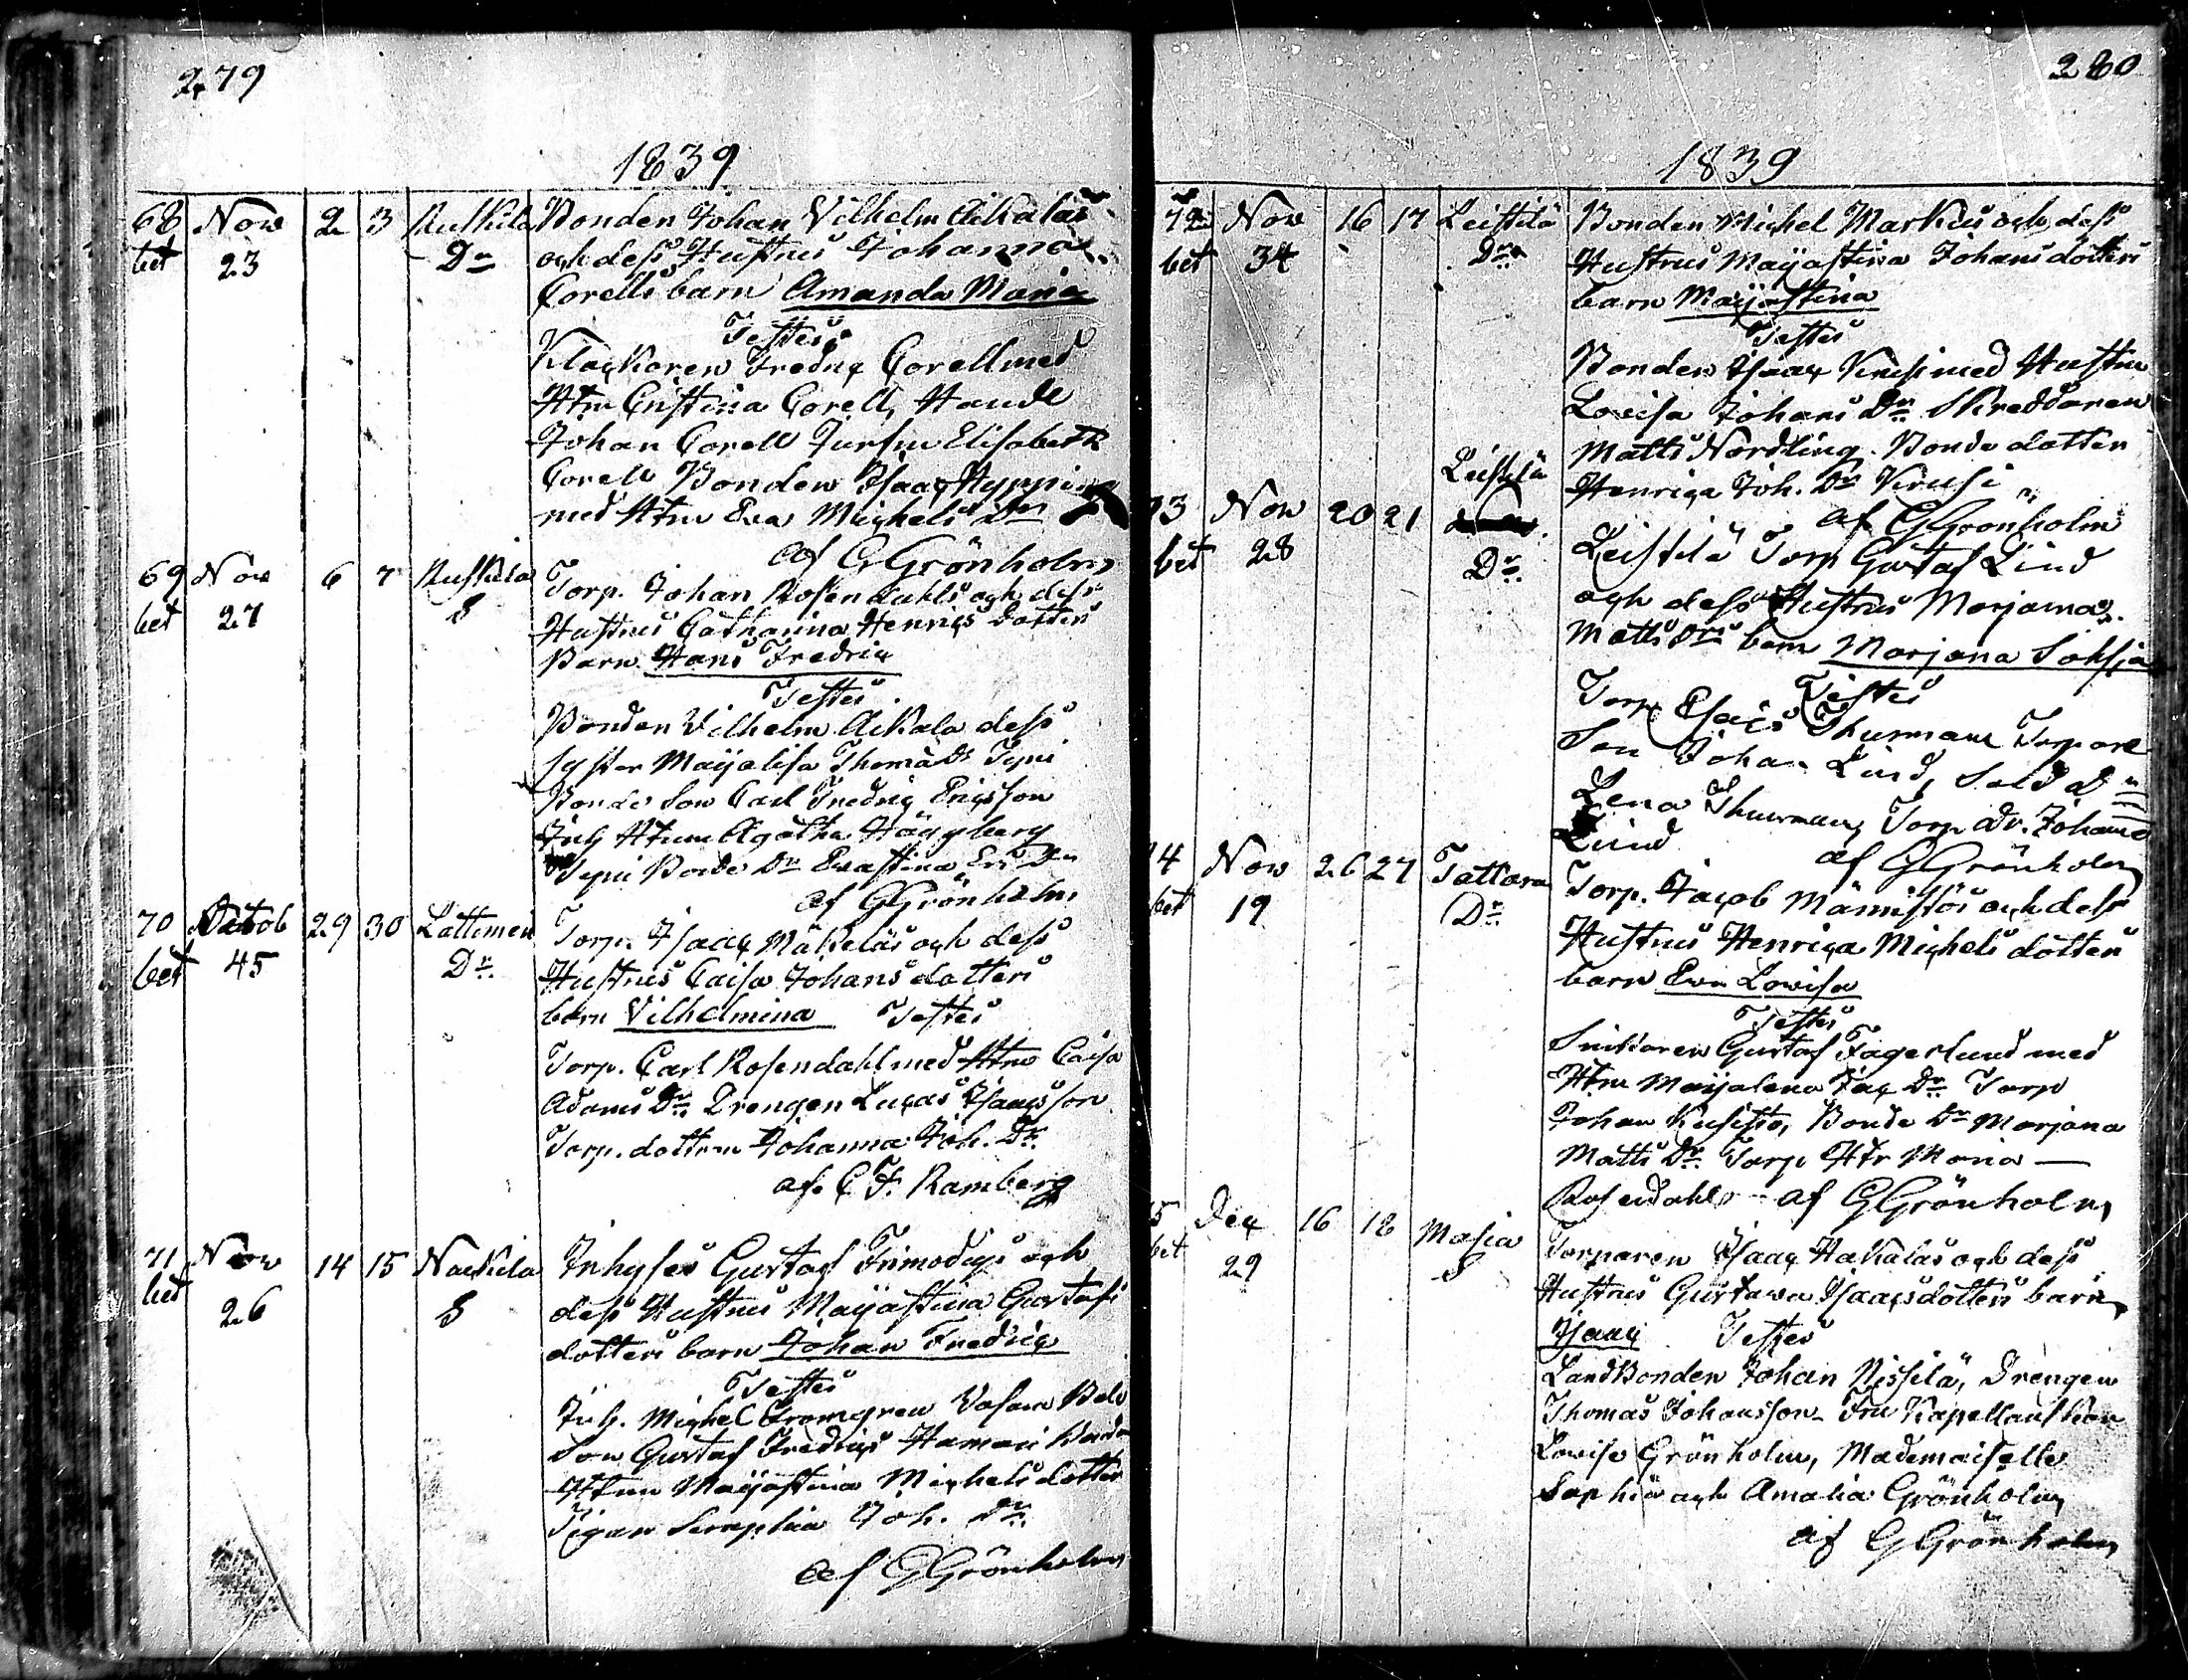 279
1839
68 Nov 2 3 Ruskila Bonden Johan Vilhelm Aikalas
bet 23 Dr och dess Hustrus Johanna
Corells barn Amanda Maria
Testes
Klockaren Fredric Corell med
Htru Cristina Corell, Handl
Johan Corell Jungfru Elisabeth
Corell Bonden Isaac Hyppi
med Htru Eva Michels Dr
af G Grönholm
69 Nov 6 7 Ruskila Torp. Johan Rosendahls och dess
bet 27 S Hustrus Catharina Henrics Dotters
Barn Hans Fredric
Testes
Bonden Vilhelm Aikala dess
syster Maijalisa Thomæ Dr Typi
Bonde Son Carl Fredric Ericsson
Inh Htrun Agatha Häggberg
Typi Bonde Dr Evastina Er. Dr
af G Grönholm
70 Octob 29 30 Lattomeri Torp. Isaac Mäkeläs och dess
bet 45 Dr. Hustrus Caisa Johans dotters
barn Vilhelmina Testes
Torp. Carl Rosendahl med Htru Caisa
Adams Dr. Drengen Lucas Isaacsson
Torp. dottren Johanna Joh. Dr.
af C. F. Ramberg
71 Nov 14 15 Nackila Inhyses Gustaf Frimodigs och
bet 26 S dess Hustrus Maijastina Gustafs
dotters barn Johan Fredric
Testes
Inh. Michel Stromgren
Son Gustaf Fredric
Htrun Maijastina Michels dotter
Pigan Seraphia Joh. Dr.
af G Grönholm
280
1839
72 Nov 16 17 Leistilä Bonden Michel Markus och dess
bet 34 Dr. Hustrus Maijastina Johans dotters
barn Maijastina
Testes
Bonden Isaac Krusi med Hustru
Lovisa Johans Dr. Skreddaren
Matts Nordling. Bonde dotten
Henrica Joh. Dr Krusi
af G Grönholm
Leistilä
73 Nov 20 21 Leistilä Torp Gustaf Lind
bet 28 Dr. och dess Hustrus Marjana
Matts Drs barn Marjana Sofia
Testes
Torp Esaias Thurman Torpare
Son Johan Lind, Sold Dr
Lena Thurman, Torp Dr. Johanna
Lind
af G Grönholm
74 Nov 26 27 Tattara Torp. Jacob Männistös och dess
bet 19 Dr. Hustrus Henrica Michels dotters
barn Eva Lovisa
Testes
Snikaren Gustaf Fagerlund med
Htru Maijalena Jac Dr. Torp
Johan Kusisto, Bonde Dr Marjana
Matts Dr. Torp Htr Maria —
Rosendahl - af G Grönholm
75 Dec 16 18 Masia Torparen Isaac Hakalas och dess
bet 29 S Hustrus Gustava Isaacsdotters barn
Isaac Testes
LandBonden Johan Nissilä, Drengen
Thomas Johansson Fru Kapellanskan
Lovisa Grönholm, Mademoiselle
Sophia och Amalia Grönholm
af G Grönholm